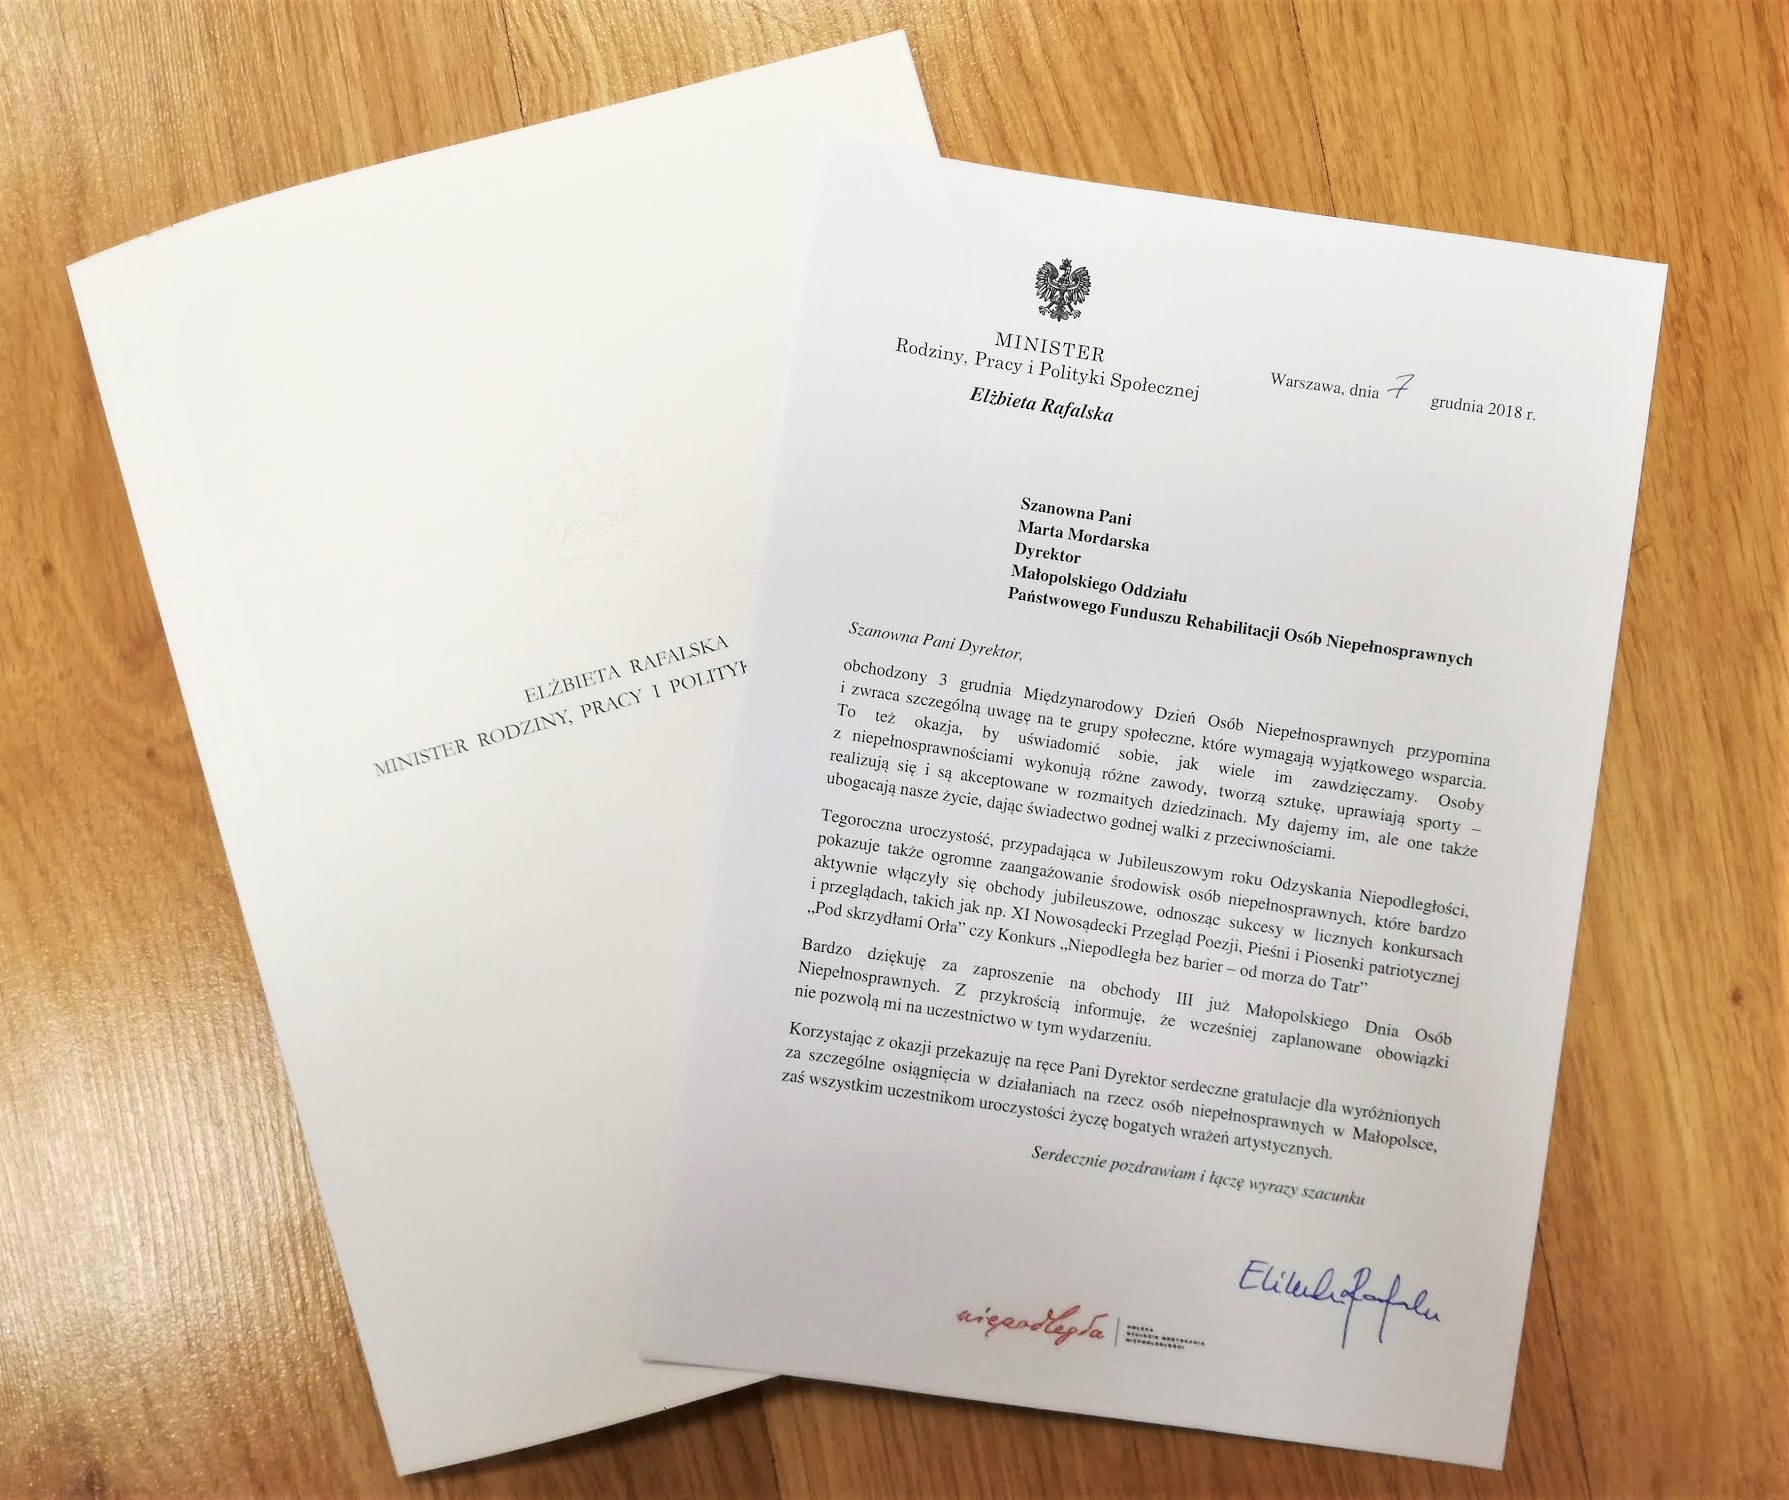 ELŻBIETA RAFALSKA
MINISTER RODZINY, PRACY I POLITYK
MINISTER
Rodziny, Pracy i Polityki Społecznej
Elżbieta Rafalska
Warszawa, dnia 7 grudnia 2018 r.
Szanowna Pani
Marta Mordarska
Dyrektor
Małopolskiego Oddziału
Państwowego Funduszu Rehabilitacji Osób Niepełnosprawnych
Szanowna Pani Dyrektor,
obchodzony 3 grudnia Międzynarodowy Dzień Osób Niepełnosprawnych przypomina
i zwraca szczególną uwagę na te grupy społeczne, które wymagają wyjątkowego wsparcia.
To też okazja, by uświadomić sobie, jak wiele im zawdzięczamy. Osoby
z niepełnosprawnościami wykonują różne zawody, tworzą sztukę, uprawiają sporty –
realizują się i są akceptowane w rozmaitych dziedzinach. My dajemy im, ale one także
ubogacają nasze życie, dając świadectwo godnej walki z przeciwnościami.
Tegoroczna uroczystość, przypadająca w Jubileuszowym roku Odzyskania Niepodległości,
pokazuje także ogromne zaangażowanie środowisk osób niepełnosprawnych, które bardzo
aktywnie włączyły się obchody jubileuszowe, odnosząc sukcesy w licznych konkursach
i przeglądach, takich jak np. XI Nowosądecki Przegląd Poezji, Pieśni i Piosenki patriotycznej
„Pod skrzydłami Orła” czy Konkurs „Niepodległa bez barier – od morza do Tatr”
Bardzo dziękuję za zaproszenie na obchody III już Małopolskiego Dnia Osób
Niepełnosprawnych. Z przykrością informuję, że wcześniej zaplanowane obowiązki
nie pozwolą mi na uczestnictwo w tym wydarzeniu.
Korzystając z okazji przekazuję na ręce Pani Dyrektor serdeczne gratulacje dla wyróżnionych
za szczególne osiągnięcia w działaniach na rzecz osób niepełnosprawnych w Małopolsce,
zaś wszystkim uczestnikom uroczystości życzę bogatych wrażeń artystycznych.
Serdecznie pozdrawiam i łączę wyrazy szacunku
niepodległa
POLSKA
STULECIE ODZYSKANIA
NIEPODLEGŁOŚCI